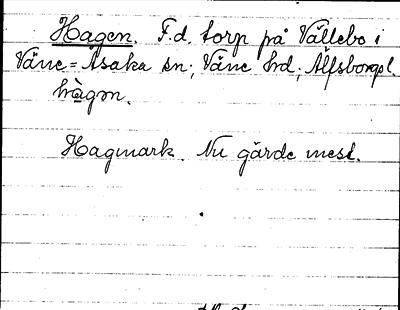 Hagen. F.d. torp på Vällebo i
Väne-Åsaka sn; Väne hrd; Älfsborgs l.
hàgɷn.
Hagmark. Nu gärde mest.